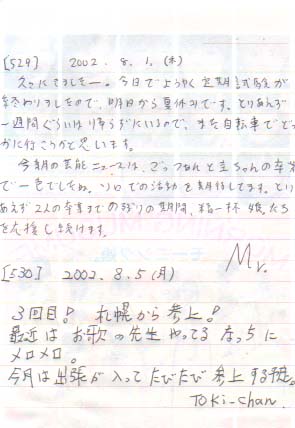 [529] 2002. 8. 1. (木)
久々にきましたー。今日でようやく定期試験が
終わりましたので、明日から夏休みです。とりあえず
一週間ぐらいは帰らずにいるので、また自転車でどっ
かに行こうかと思います。
今朝の芸能ニュースは、ごっつぁんと圭ちゃんの卒業
で一色でしたね。ソロでの活動を期待してます。とり
あえず2人の卒業までの残りの期間、精一杯 娘。たち
を応援し続けます。
Mr.
[530] 2002. 8. 5 (月)
3回目! 札幌から参上!
最近は お歌の先生 やってる なっちに
メロメロ。
今月は出張が入って たびたび 参上 する予定。
Toki-chan.